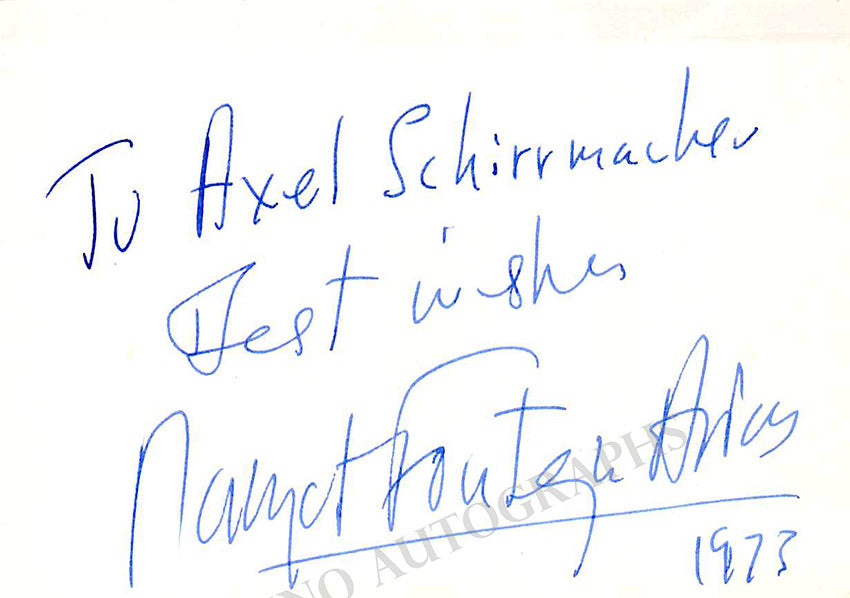 To Axel Schirrmacher
Best wishes
Margot Fonteyn Arias
1973
NO AUTOGRAPHS